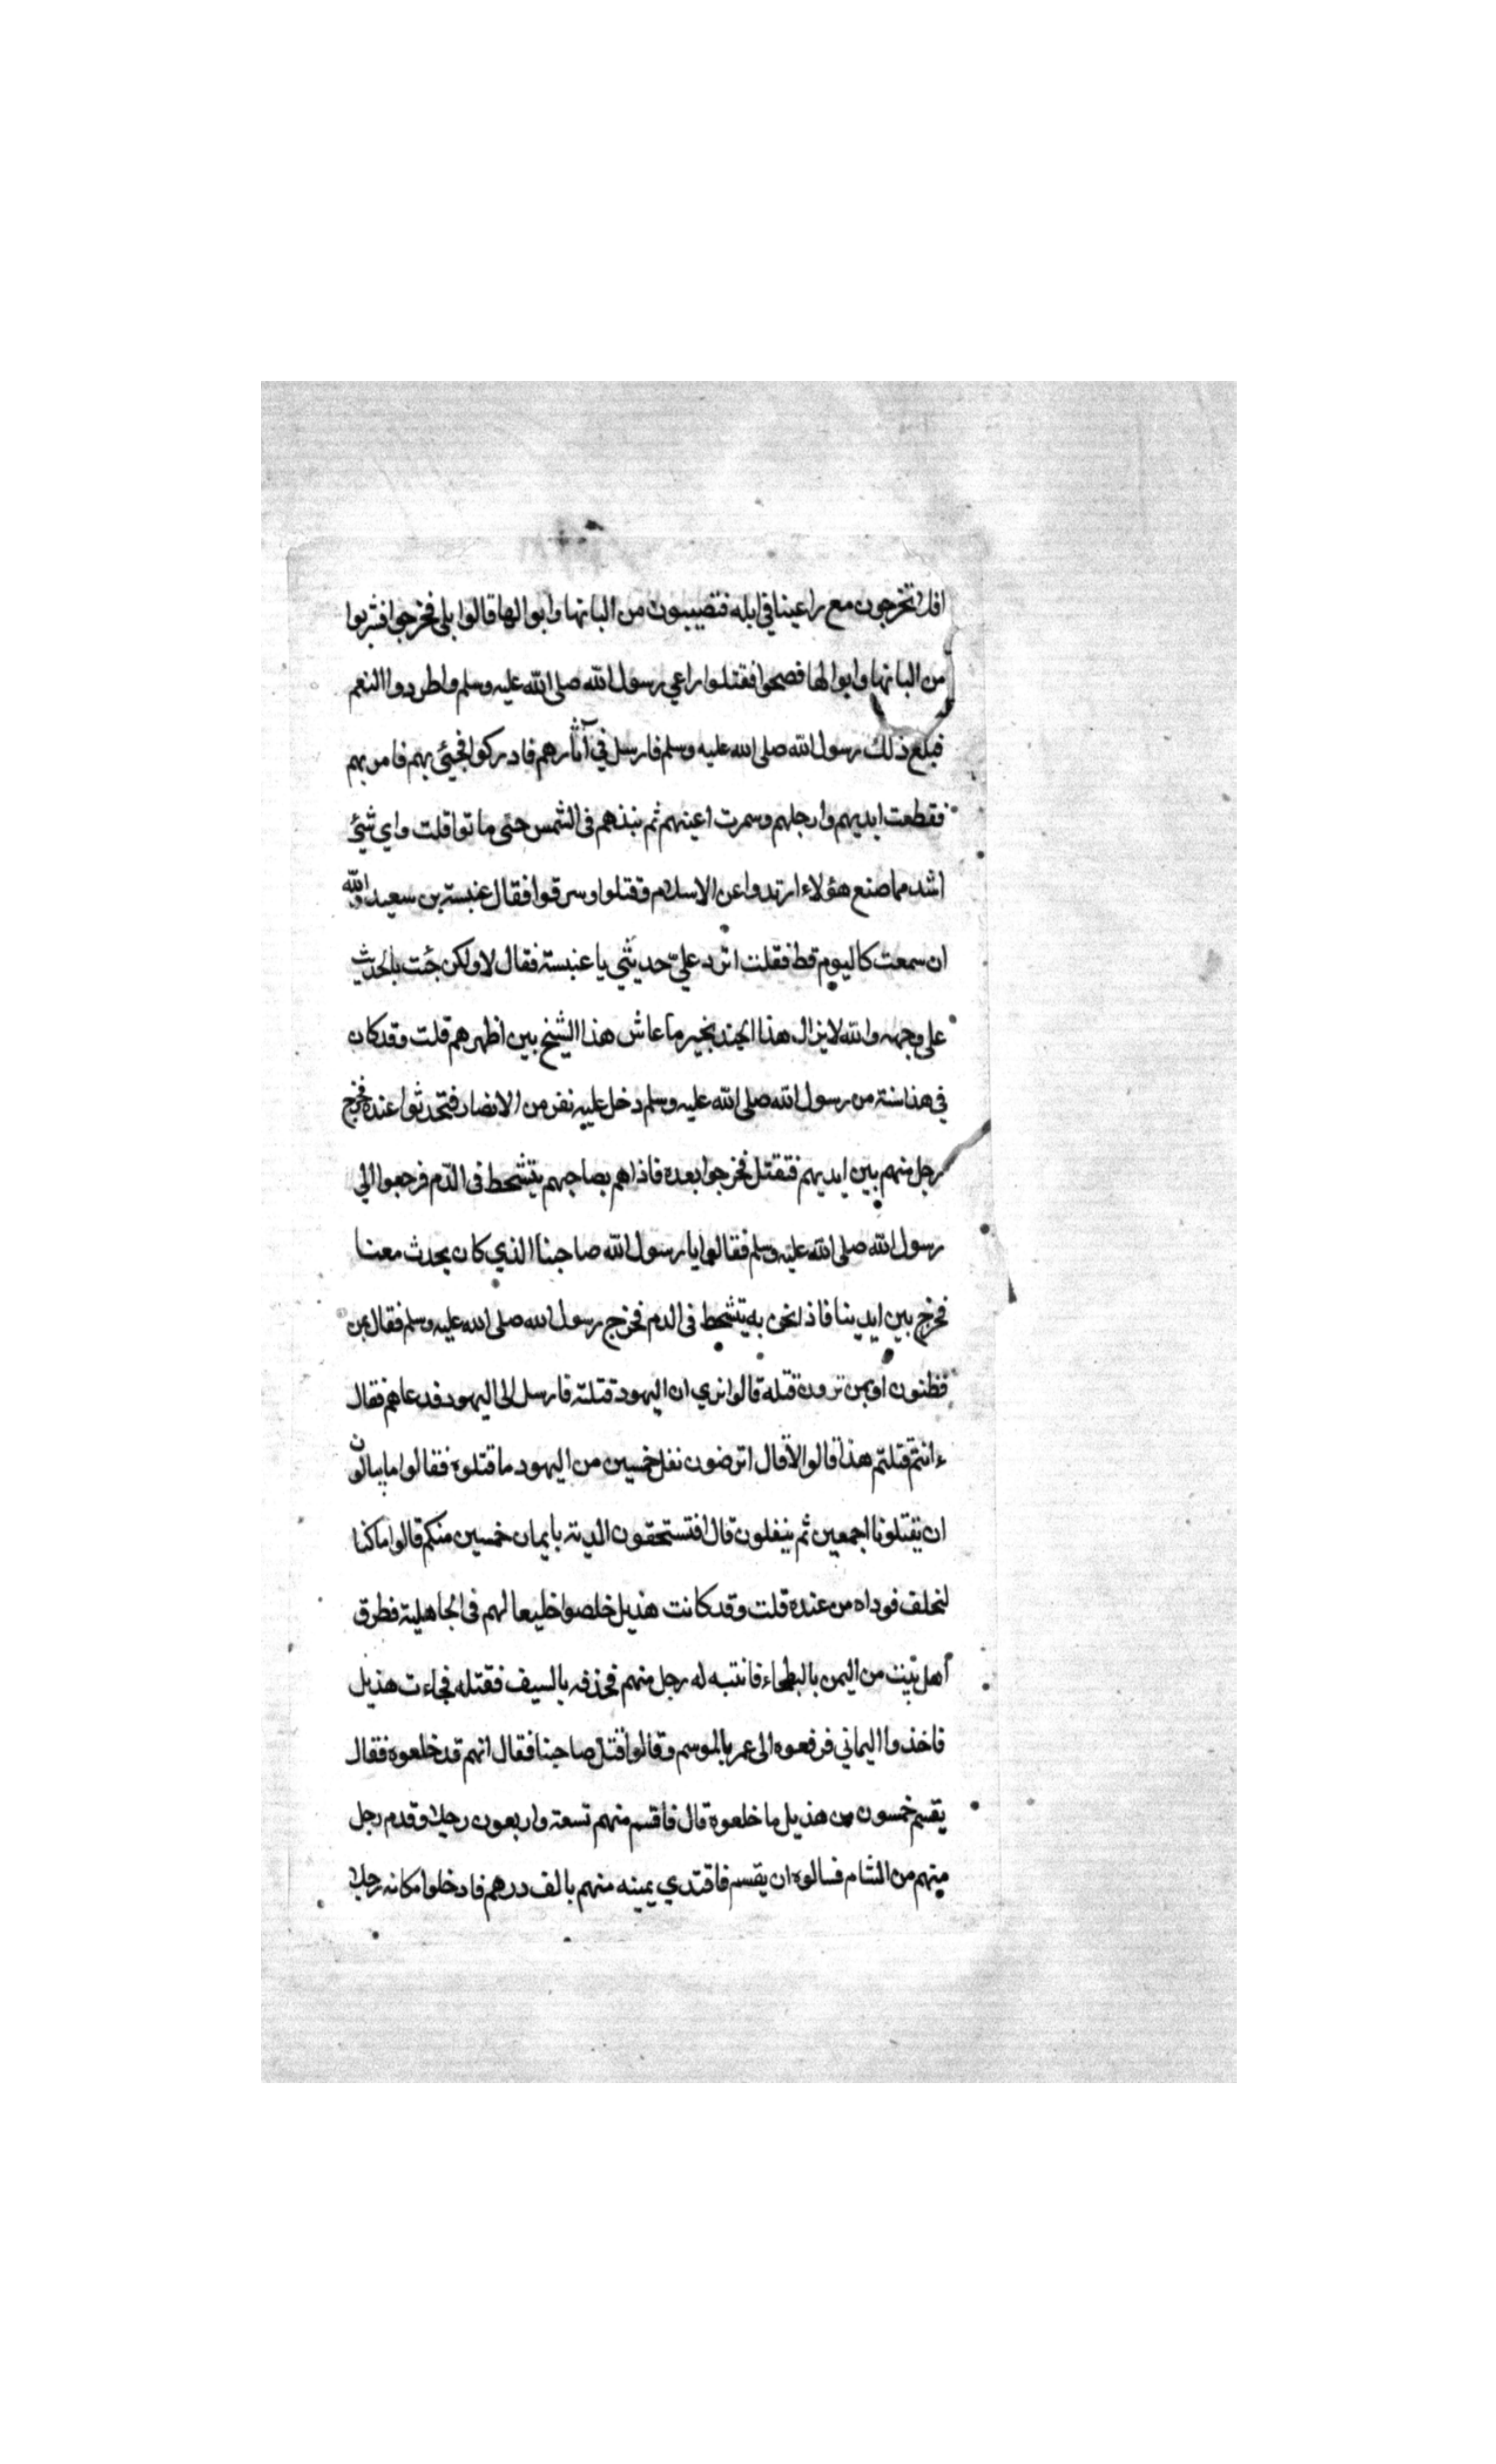 افلا تخرجون مع راعينا في ابله فتصيبون من البانها وابوالها قالوا بلى فخرجوا فشربوا
من البانها وابوالها فصحوا فقتلوا راعي رسول الله صلى الله عليه وسلم واطردوا النعم
فبلغ ذلك رسول الله صلى الله عليه وسلم فارسل في آثارهم فادركوا فجيئ بهم فامر بهم
فقطعت ايديهم وارجلهم وسمرت اعينهم ثم نبذهم في الشمس حتى ماتوا قلت واي شيئ
اشد مما صنع هؤلاء ارتدوا عن الاسلام وقتلوا وسرقوا فقال عنبسة بن سعيد والله
ان سمعت كاليوم قط فقلت اترد علي حديثي يا عنبسة فقال لا ولكن جئت بالحديث
على وجهه والله لا يزال هذا الجند بخير ما عاش هذا الشيخ بين اظهرهم قلت وقد كان
في هذا سنة من رسول الله صلى الله عليه وسلم دخل عليه نفر من الانصار فتحدثوا عنده فخرج
رجل منهم بين ايديهم فقتل فخرجوا بعده فاذا هم بصاحبهم يتشحط في الدم فرجعوا الي
رسول الله صلى الله عليه وسلم فقالوا يا رسول الله صاحبنا الذي كان يحدث معنا
فخرج بين ايدينا فاذا نحن به يتشحط في الدم فخرج رسول الله صلى الله عليه وسلم فقال بمن
تظنون او بمن ترون قتله قالوا نري ان اليهود قتلته فارسل الى اليهود فدعاهم فقال
ءانتم قتلتم هذا قالوا لا قال اترضون نفل خمسين من اليهود ما قتلوه فقالوا ما يبالون
ان يقتلونا اجمعين ثم ينفلون قال افتستحقون الدية بايمان خمسين منكم قالوا ما كنا
لنحلف فوداه من عنده قلت وقد كانت هذيل خلصوا خليعا لهم في الجاهلية فطرق
اهل بيت من اليمن بالبطحاء فانتبه له رجل منهم فحذفه بالسيف فقتله فجاءت هذيل
فاخذوا اليماني فرفعوه الى عمر بالموسم وقالوا قتل صاحبنا فقال انهم قد خلعوه فقال
يقسم خمسون من هذيل ما خلعوه قال فاقسم منهم تسعة واربعون رجلا وقدم رجل
منهم من الشام فسالوه ان يقسم فاقتدي يمينه منهم بالف درهم فادخلوا مكانه رجلا